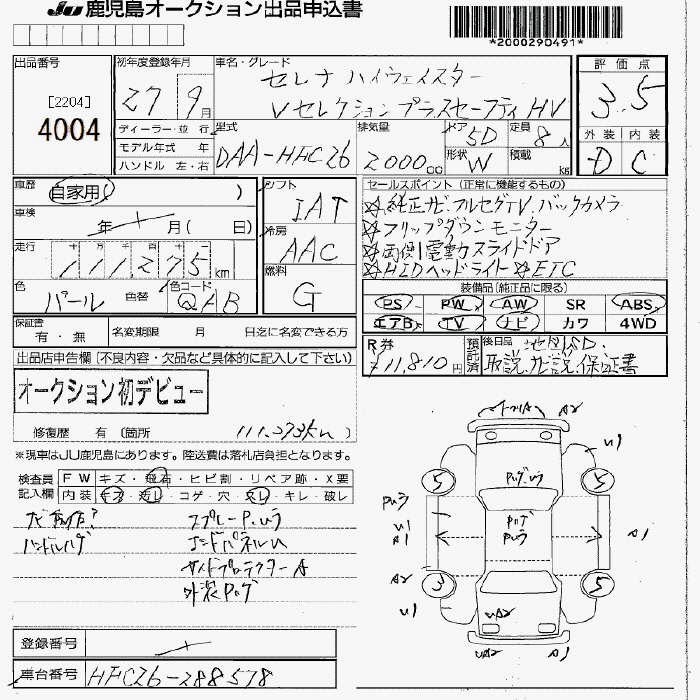 JU 鹿児島オークション出品申込書
*2000290491*
出品番号
[2204]
4004
初年度登録年月
27 9月
車名・グレード
セレナ ハイウェイスター
Vセレクション プラスセーフティ HV
評価点
3.5
外装 内装
D C
ディーラー・並行
モデル年式 年
ハンドル 左・右
型式
DAA-HFC26
排気量
2000cc
ドア
5D
定員
8人
形状
W
積載
kg
車歴
自家用( )
車検
年 月( 日)
走行
十 万 千 百 十 一
111275km
色
パール
色替
色コード
QAB
シフト
IAT
冷房
AAC
燃料
G
セールスポイント (正常に機能するもの)
☆純正ナビ フルセグTV.バックカメラ
☆フリップダウンモニター
☆両側電動スライドドア
☆HIDヘッドライト☆ETC
装備品(純正品に限る)
PS PW AW SR ABS
エアB TV ナビ カワ 4WD
保証書
有・無
名変期限 月 日迄に名変できる方
R券
¥11,810円
預託済
後日品
地図SD.
取説.ナビ説.保証書
出品店申告欄(不良内容・欠品など具体的に記入して下さい)
オークション初デビュー
修復歴 有 (箇所 )
※現車はJU鹿児島にあります。陸送費は落札店負担となります。
検査員
記入欄
FW キズ・飛石・ヒビ割・リペア跡・X要
内装 キズ・汚レ・コゲ・穴・スレ・キレ・破レ
ハンドルハゲ
エンドパネルU
サイドプロテクターA
外装Pハゲ
A2
U1
5
5
U1
A1
A1
A2
3
5
U1
UA2
UA2
A1
登録番号
車台番号
HFC26-288578